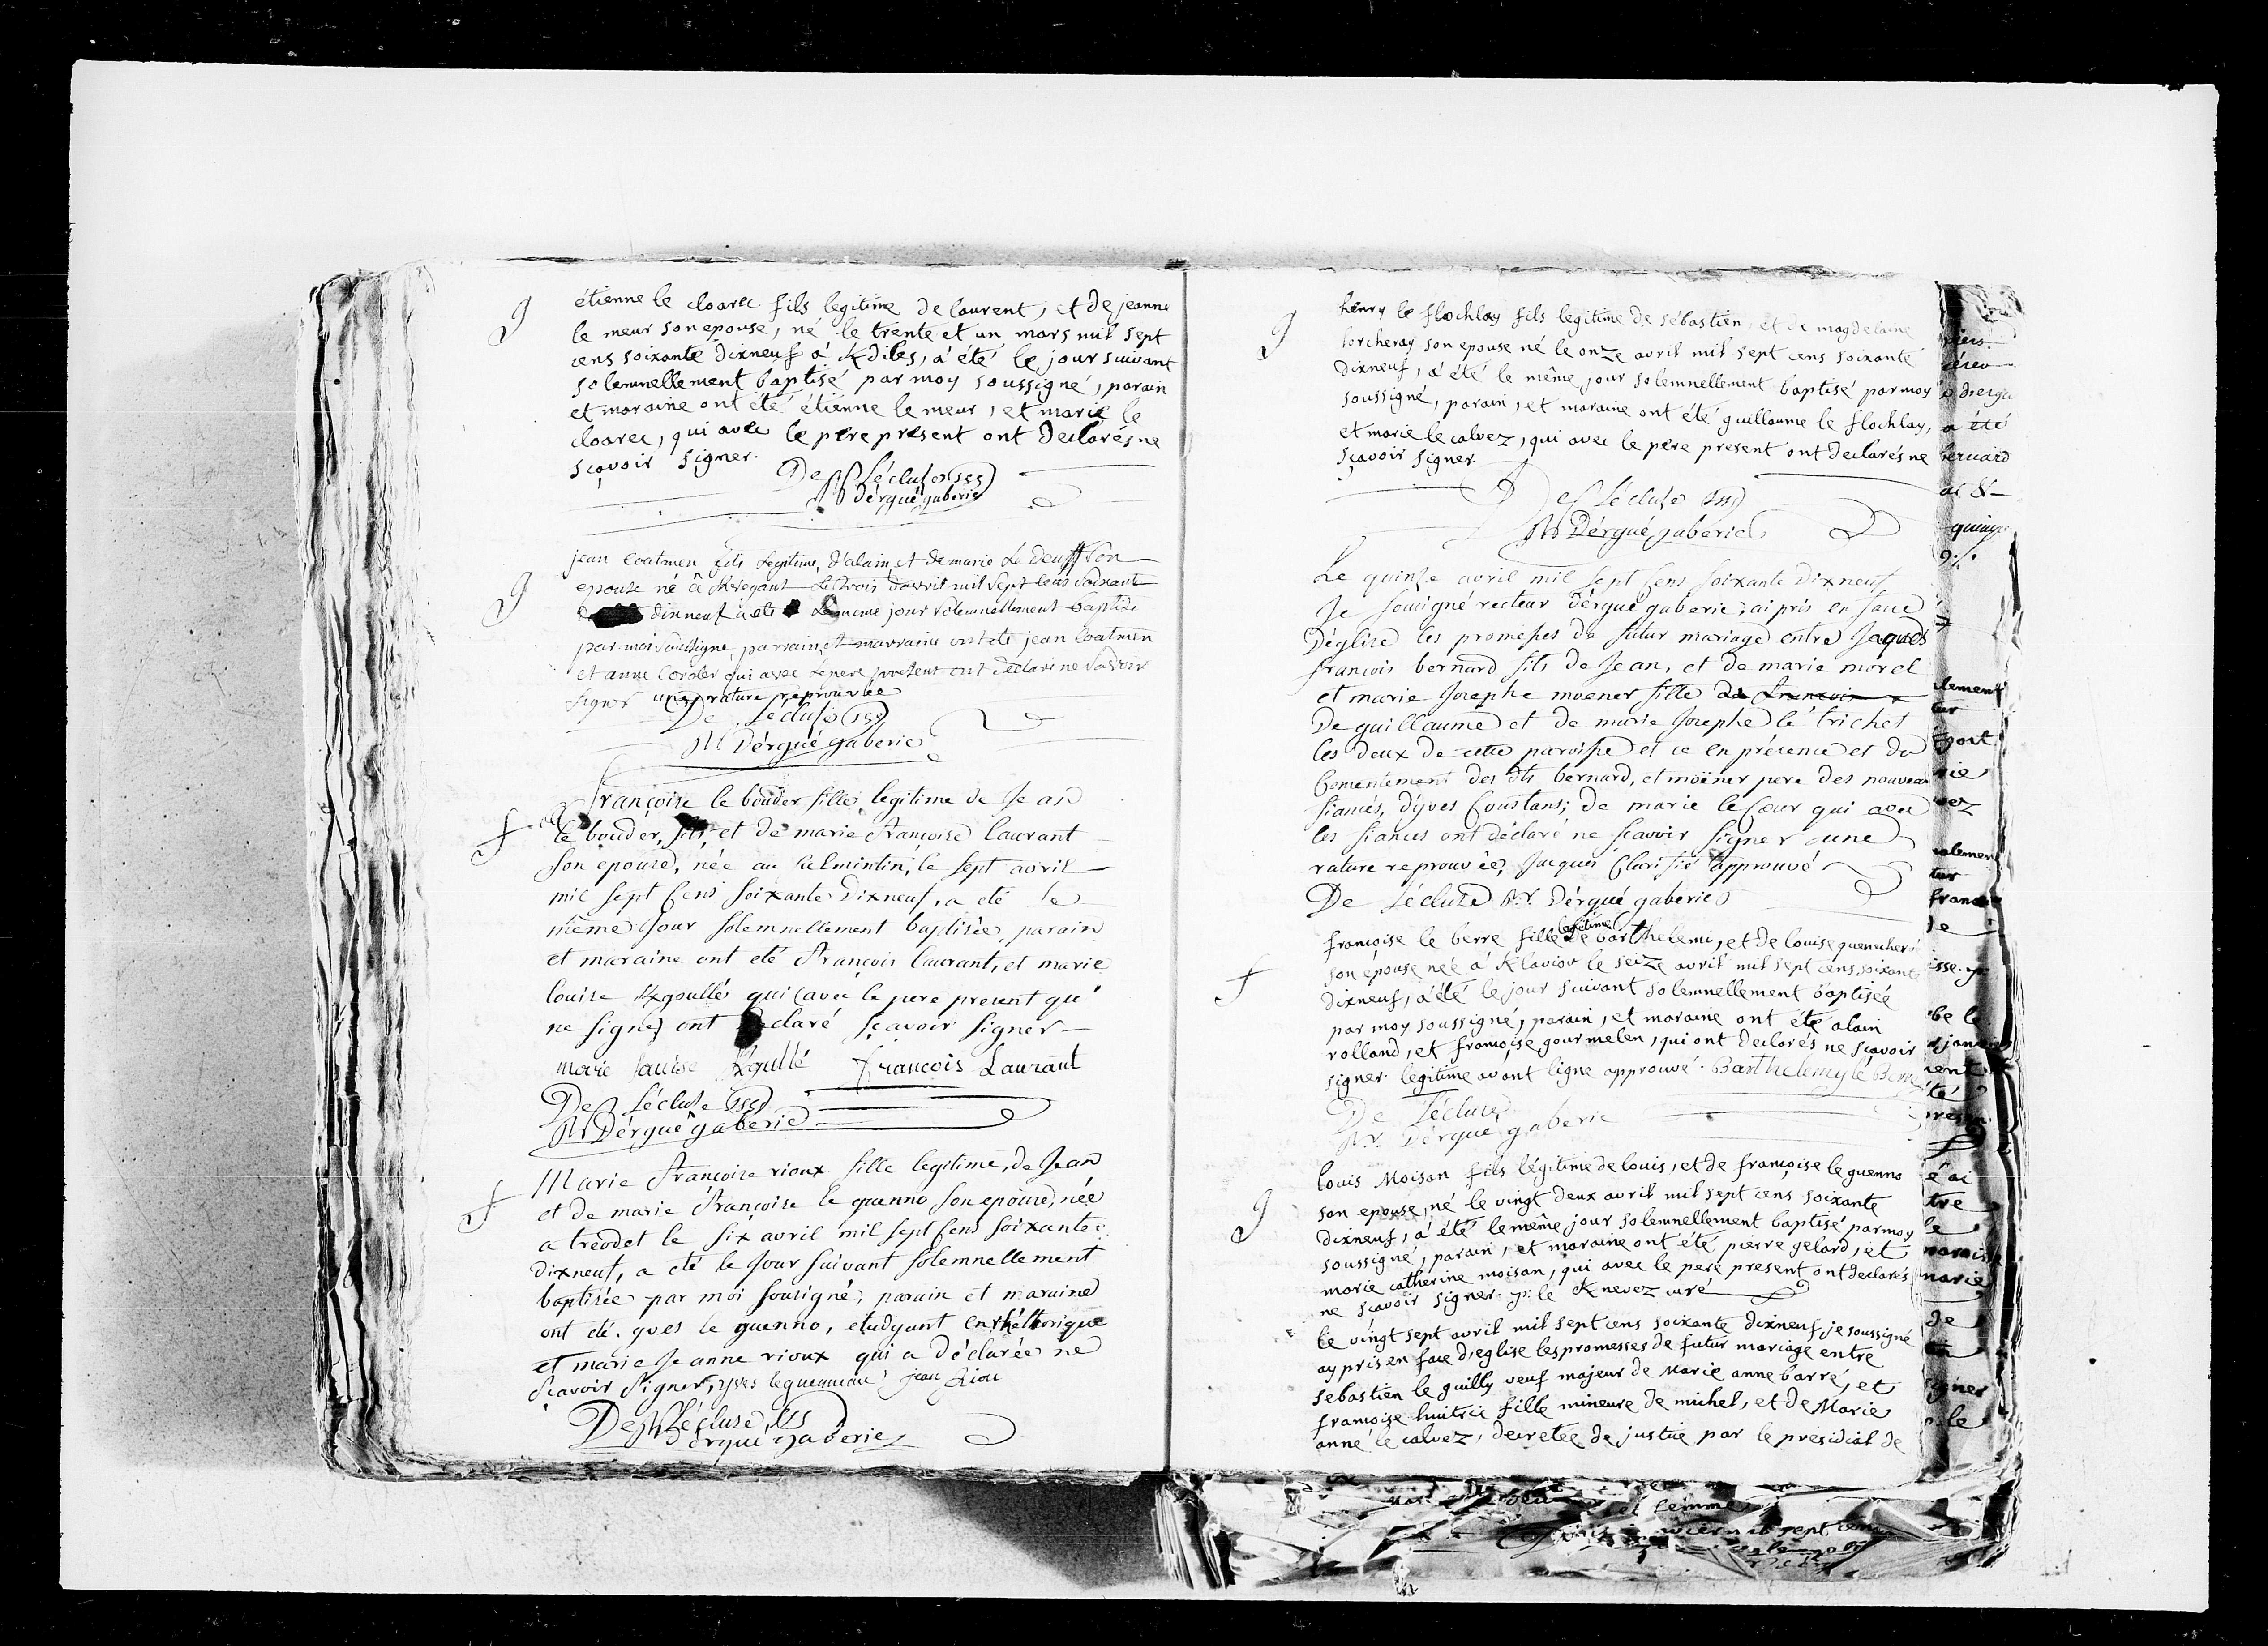 g
étienne le cloarec fils legitime de laurent, et de jeanne
le meur son epouse, né le trente et un mars mil sept
cens soixante dixneuf à Kdiles, a été le jour suivant
solemnellement baptisé par moy soussigné, parain
et maraine ont été étienne le meur, et marie le
cloarec, qui avec le pere present ont declarés ne
sçavoir signer.
De Lécluse
dérgué gaberic
g
jean coatmen fils legitime d'alain et de marie Le deuff son
epouse né à Le trois d'avril mil sept cens soixante
dixneuf a eté Le meme jour solemnellement baptisé
par moi soussigné parrain et marraine ont eté jean coatmen
et anne Cordier qui avec Le pere present ont declaré ne savoir
signer une rature réprouvée
De Lécluse
dérgué gaberic
f
françoise le bouder fille legitime de Jean
le bouder, et de marie françoise laurant
son epouse, née au Kelmintin, le sept avril
mil sept cens soixante dixneuf, a eté le
même jour solemnellement baptisée parain
et maraine ont eté François laurant, et marie
louise Kgoullé qui (avec le pere present qui
ne signe) ont declaré sçavoir signer
marie Louise Kgullé françois Laurant
De Lécluse
dérgué gaberic
f
Marie françoise rioux fille legitime, de Jean
et de marie françoise le guenno son epouse, née
a treodet le six avril mil sept cens soixante
dixneuf, a eté le jour suivant solemnellement
baptisée par moi sousigné, parain et maraine
ont eté yves le guenno, etudyant en rhétorique
et marie Jeanne rioux qui a déclarée ne
sçavoir signer, yves leguennou jean Riou
De Lécluse
dérgué gaberic
g
henry le flochlay fils legitime de sébastien, et de magdelaine
torcheray son epouse né le onze avril mil sept cens soixante
dixneuf, a été le même jour solemnellement baptisé par moy
soussigné, parain, et maraine ont été guillaume le flochlay,
et marie le calvez, qui avec le père present ont declarés ne
sçavoir signer.
De Lécluse
dérgué gaberic
Le quinse avril mil sept cens soixante dixneuf
Je sousigné recteur dérgué gaberic, ai pris en face
d'église les promesses de futur mariage entre Jaques
françois bernard fils de Jean, et de marie morel
et marie Josephe moener fille de françois
de guillaume et de marie Josephe le triches
les deux de cette paroisse et ce en présence et du
consentement des dts bernard, et moëner pere des nouveau
fiancés, d'yves Coustans; de marie le Cœur qui avec
les fiancés ont déclaré ne sçavoir signer une
rature reprouvée, Jaques clarifié approuvé
De Lécluse dérgué gaberic
f
legitime
françoise le berre fille de barthelemi, et de louise quenecherv
son épouse née à Klaviou le seize avril mil sept cens soixante
dixneuf, a été le jour suivant solemnellement baptisée
par moy soussigné, parain, et maraine ont été alain
rolland, et françoise gourmelen, qui ont declarés ne sçavoir
signer legitime avant ligne approuvé. Barthelemy lé Berre
De Lécluse
dérgué gaberic
g
louis Moisan fils légitime de louis, et de françoise le guenno
son epouse, né le vingt deux avril mil sept cens soixante
dixneuf, a été le même jour solemnellement baptisé par moy
soussigné, parain, et maraine ont été pierre gelard, et
marie catherine moisan, qui avec le pere present ont declarés
ne sçavoir signer. le Knevez curé
le vingt sept avril mil sept cens soixante dixneuf, je soussigné
ay pris en face d'eglise les promesses de futur mariage entre
sebastien le guilly veuf majeur de Marie anne barré, et
françoise huitric fille mineure de michel, et de Marie
anne le calvez, decretée de justice par le presidial de
a été
bernard
de
narie
signer
le
et femme